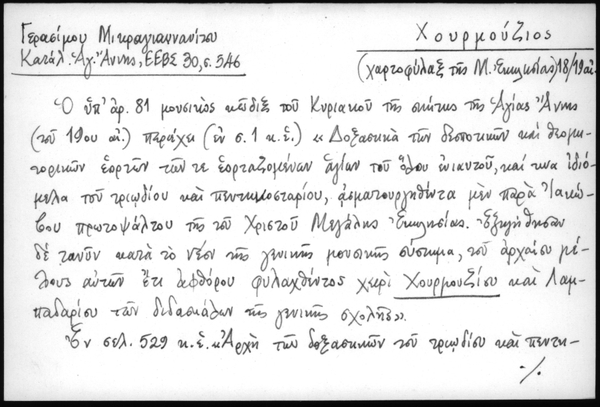 Γερασίμου Μικραγιαννανίτου
Κατάλ. Ἁγ. Ἄννης, ΕΕΒΣ 30, σ. 546
Χουρμούζιος
(χαρτοφύλαξ τῆς Μ. Ἐκκλησίας) 18/19 αἰ.
Ὁ ὑπ' ἀρ. 81 μουσικὸς κῶδιξ τοῦ Κυριακοῦ τῆς σκήτης τῆς Ἁγίας Ἄννης
(τοῦ 19ου αἰ.) περιέχει (ἐν σ. 1 κ.ἑ.) «Δοξαστικὰ τῶν δεσποτικῶν καὶ θεομη-
τορικῶν ἑορτῶν τῶν τε ἑορταζομένων ἁγίων τοῦ ὅλου ἐνιαυτοῦ, καί τινα ἰδιό-
μελα τοῦ τριῳδίου καὶ πεντηκοσταρίου, ἀσματουργηθέντα μὲν παρὰ Ἰακώ-
βου πρωτοψάλτου τῆς τοῦ Χριστοῦ Μεγάλης Ἐκκλησίας. Ἐξηγήθησαν
δὲ τανῦν κατὰ τὸ νέον τῆς γενικῆς μουσικῆς σύστημα, τοῦ ἀρχαίου μέ-
λους αὐτῶν ἔτι ἀφθόρου φυλαχθέντος χειρὶ Χουρμουζίου καὶ Λαμ-
παδαρίου τῶν διδασκάλων τῆς γενικῆς σχολῆς».
Ἐν σελ. 529 κ.ἑ. «Ἀρχὴ τῶν δοξαστικῶν τοῦ τριῳδίου καὶ πεντη-
·/.